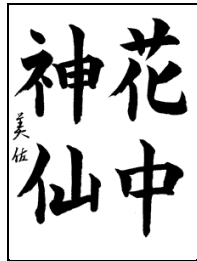 花中
神仙
美佐